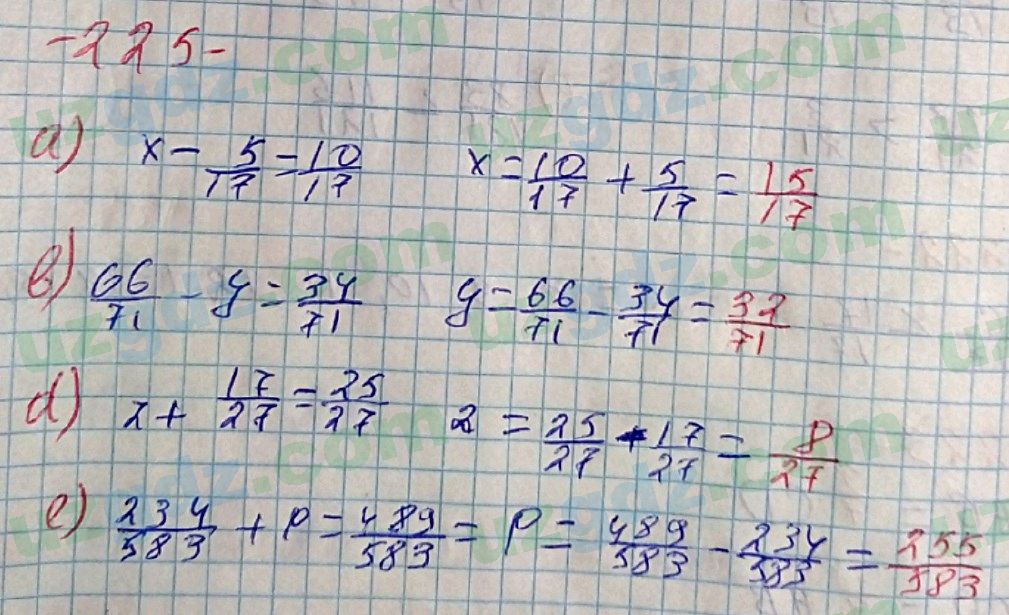 -225-
a) x - 5/17 = 10/17 x = 10/17 + 5/17 = 15/17
b) 66/71 - y = 34/71 y = 66/71 - 34/71 = 32/71
d) z + 17/27 = 25/27 z = 25/27 - 17/27 = 8/27
e) 234/583 + p = 489/583 = p = 489/583 - 234/583 = 255/583
uzgdz.com